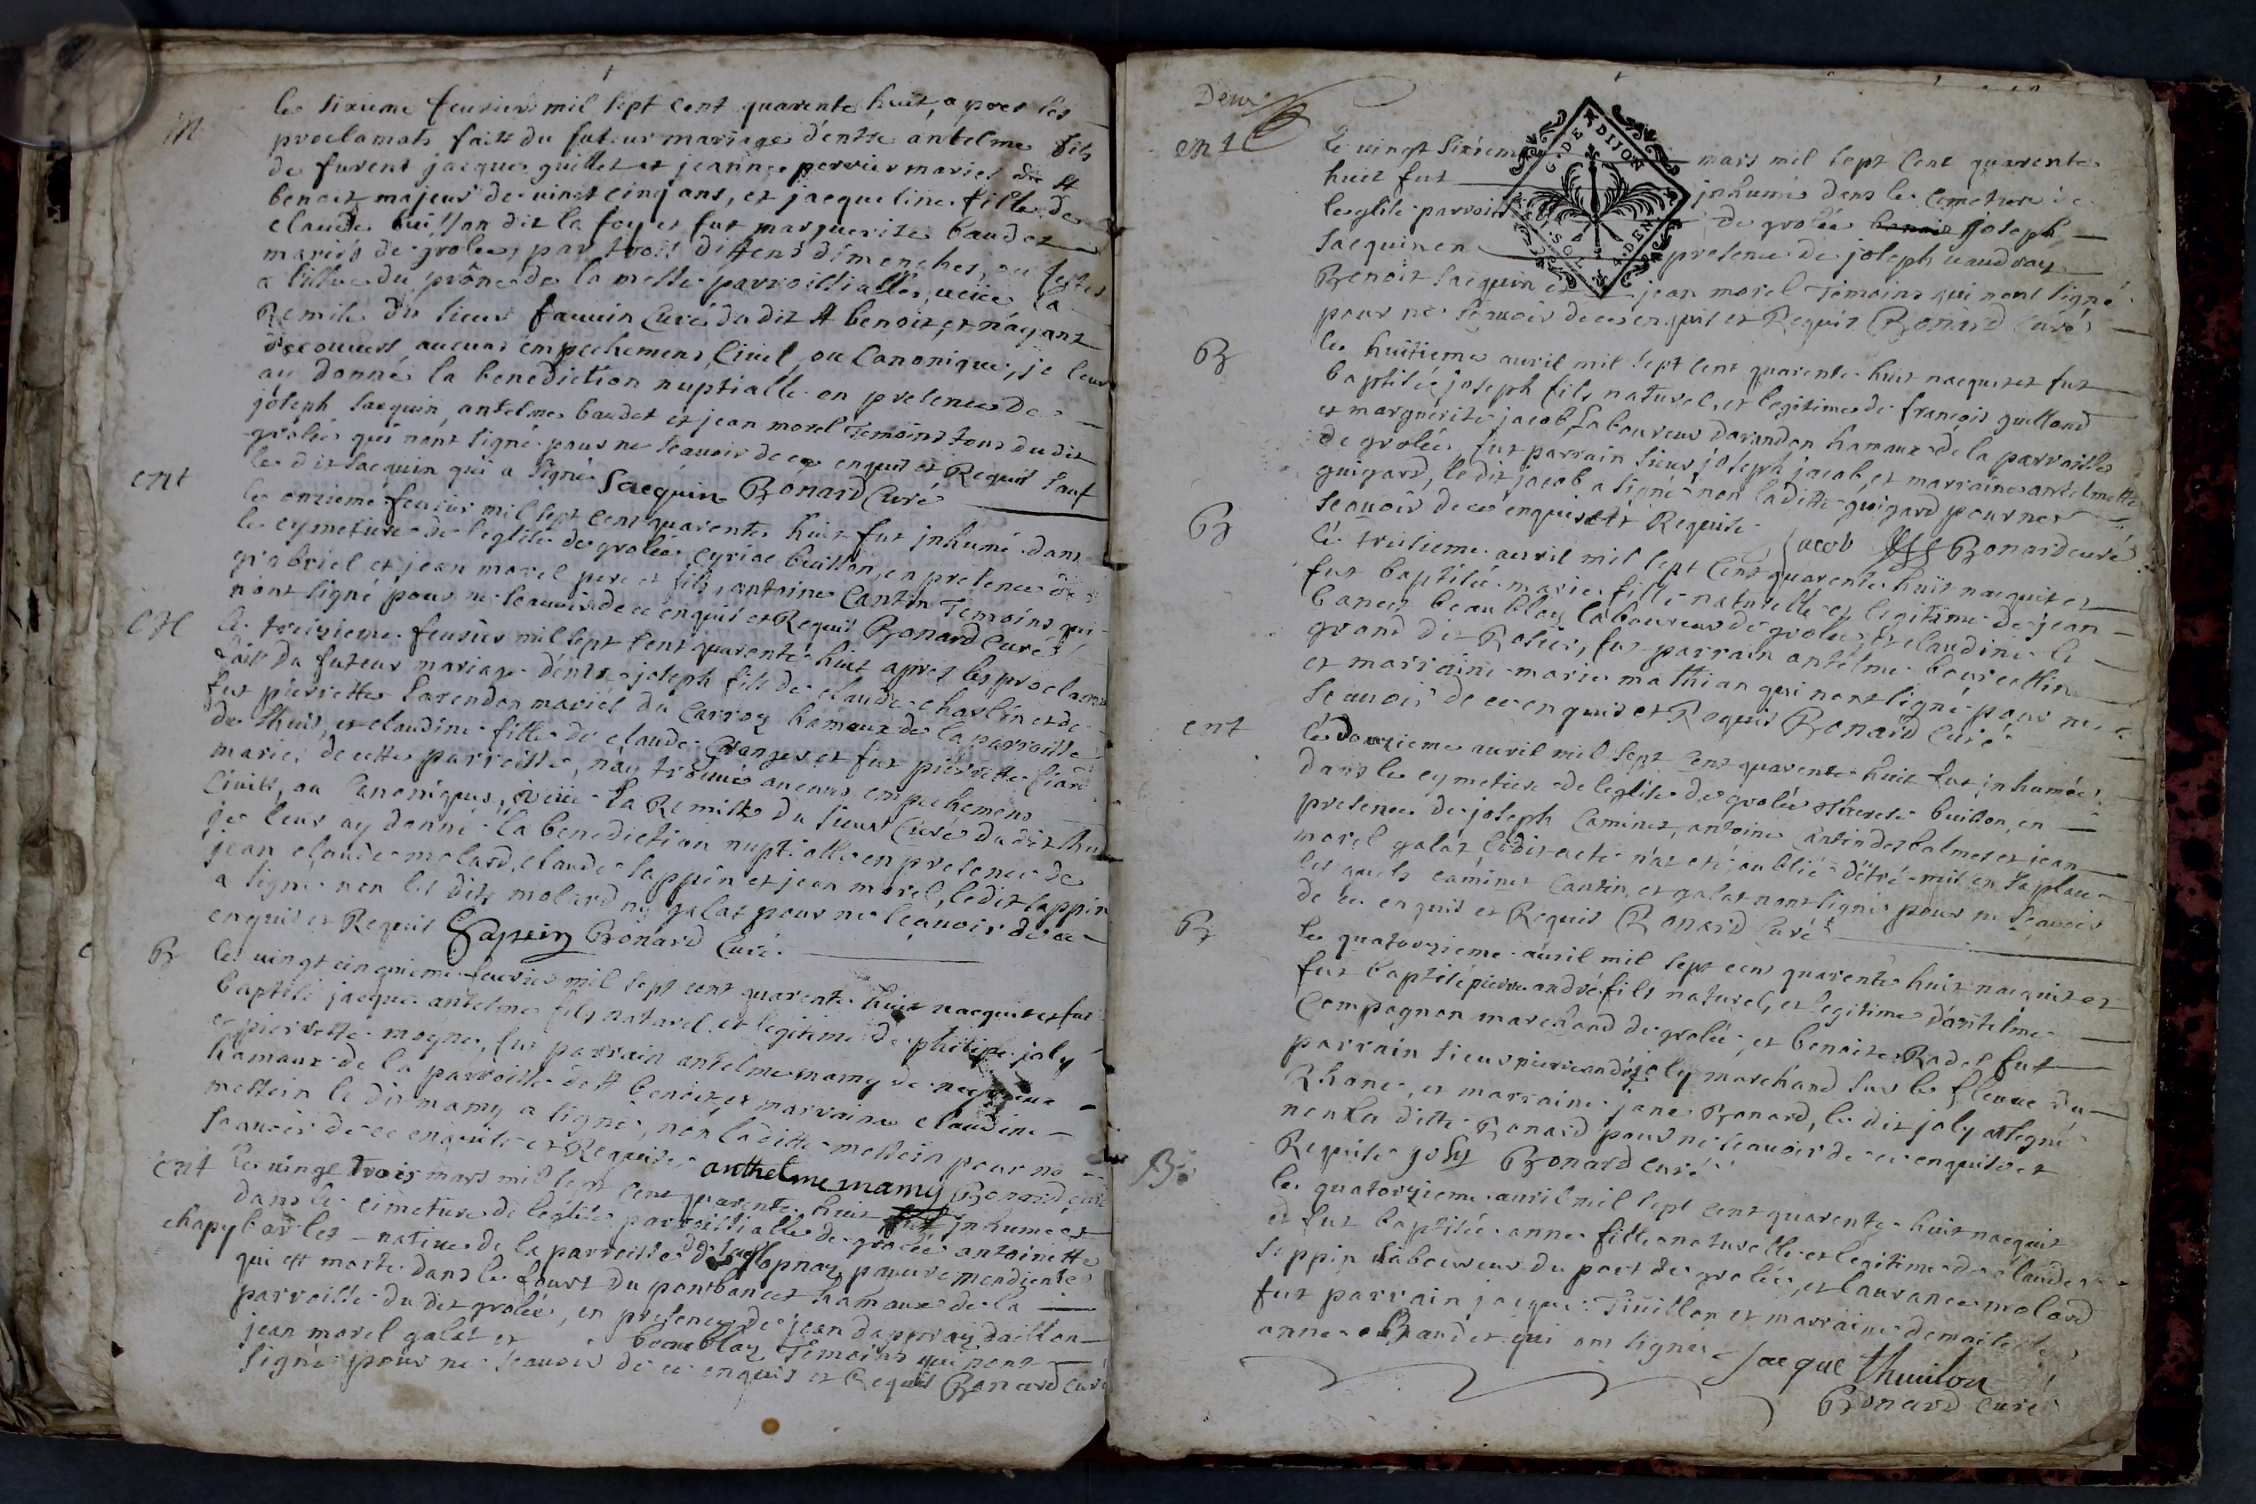 m
le sixieme feurier mil sept cent quarente huit, apres les
proclamats faits du futeur mariage d'entre antelme fils
de furent jacque guillet et jeanne perrier mariés de st
benoit majeur de vinct cinq ans, et jacqueline fille de
claude buillon dit la foy et fut marguerite baudet
mariés de grolee, par trois differens dimenches, ou festes
a lissue du prône de la messe parroissialle, veüe la
Remise du sieur fauvin Curé du dit st benoit, et n'ayant
decouvert aucuns empechemens Civil, ou Canonique, je leur
ay donné la benediction nuptialle en presence de
joseph Sacquin, antelme baudet et jean morel Temoins tous du dit
grolée qui nont signé pour ne scauoir de ce enquis et Requis sauf
le dit sacquin qui a signé Sacquin Bonard Curé
ent
le onzieme feurier mil sept cent quarente huit fut jnhumé dans
le cymetiere de l'eglise de grolée Cyriae buillon, en presence de
grabriel et jean morel pere et fils, antoine Cantin Temoins qui
n'ont signé pour ne scauoir de ce enquis et Requis Bonard Curé
m
le treizieme feurier mil sept cent quarente huit apres les proclamats
faits du futeur mariage d'entre joseph fils de claude charlin et de
fut pierrette Larendon mariés du Carroz hamaux de la parroisse
de lhuis, et claudine fille de claude Granger et fut pierrette
mariés de cette parroisse, n'ay trouvé aucuns empechemens
Civils, ou Canoniques, veüe la Remise du sieur Curé du dit lhuis
je leur ay donné la benediction nuptialle en presence de
jean claude molard, claude sappin et jean morel, le dit sappin
a signé non les dits molard ny galat pour ne scauoir de ce
enquis et Requis Sapein Bonard Curé
B
le vingt cinquieme feurier mil sept cent quarente huit nacquit et fut
baptisé jacque antelme fils naturel et legitime de philipe joly
et pierrette mogne, fut parrain antelme mamy de
hamaux de la parroisse de st benoit, et marraine claudine
mettein le dit mamy a signé, non la ditte mettein pour ne
scauoir de ce enquise et Requise anthelme mamy Bonard curé
ent
le vingt trois mars mil sept cent quarente huit fut jnhumée
dans le cimetiere de l'eglise parroissialle de grolée antoinette
chapy barlet – natiue de la parroisse de pauure mendiente
qui est morte dans le fourt du pontbancet hamaux de la
parroisse du dit grolée, en presence de jean dappray daillon
jean morel galat et beaublay Temoins qui nont
signé pour ne scauoir de ce enquis et Requis Bonard Curé
Deux
ent
le vingt sixieme mars mil sept cent quarente
huit fut jnhumé dans le cimetiere de
leglise parroiss de grolée benoit joseph
sacquin en presence de joseph vaudray
Benoit sacquin et jean morel Temoins qui nont signé
pour ne scauoir de ce enquis et Requis Bonard Curé
G. DE DIJON
B
le huitieme auril mil sept cent quarente huit nacquit et fut
baptisé joseph fils naturel, et legitime de francois guilland
et marguerite jacob Laboureur darandon hamaux de la parroisse
de grolée, fut parrain sieur joseph jacob, et marraine antelmette
guigard, le dit jacob a signé non la ditte guigard pour ne
scauoir de ce enquise et Requise jacob Bonard curé
B
le treisieme auril mil sept cent quarente huit nacquit et
fut baptisée marie fille naturelle et legitime de jean
bancet beaublay laboureur de grolée, et claudine le
grand dit Rosier, fut parrain antelme bourcellin
et marraine marie mathian qui nont signé pour ne
scauoir de ce enquis et Requis Bonard Curé
ent
le Douzieme auril mil sept cent quarente huit fut jnhumée
dans le cymetiere de leglise de grolée therese buillon, en
presence de joseph Caminet, antoine Cantin des balmes et jean
morel galat le dit acte n'at eté oublié d'etre mis en sa place
les quels caminet Cantin, et galat nont signé pour ne scauoir
de ce enquis et Requis Bonard Curé
B
le quatorzieme auril mil sept cent quarente huit nacquit et
fut baptisé pierre andré fils naturel, et legitime d'antelme
Compagnon marchand de grolée, et benoite Rodet fut
parrain sieur pierre andré joly marchand sur le fleuue du
Rhone, et marraine jane Bonard, le dit joly at signé
non la ditte Bonard pour ne scauoir de ce enquise et
Requise joly Bonard curé
B
le quatorzieme auril mil sept cent quarente huit nacquit
et fut baptisée anne fille naturelle et legitime de claude
sappin Laboureur du port de grolée, et laurance molard
fut parrain jacque Tiuillon et marraine demoiselle
anne Baudet qui ont signé Jacque thuilon
Bonard Curé